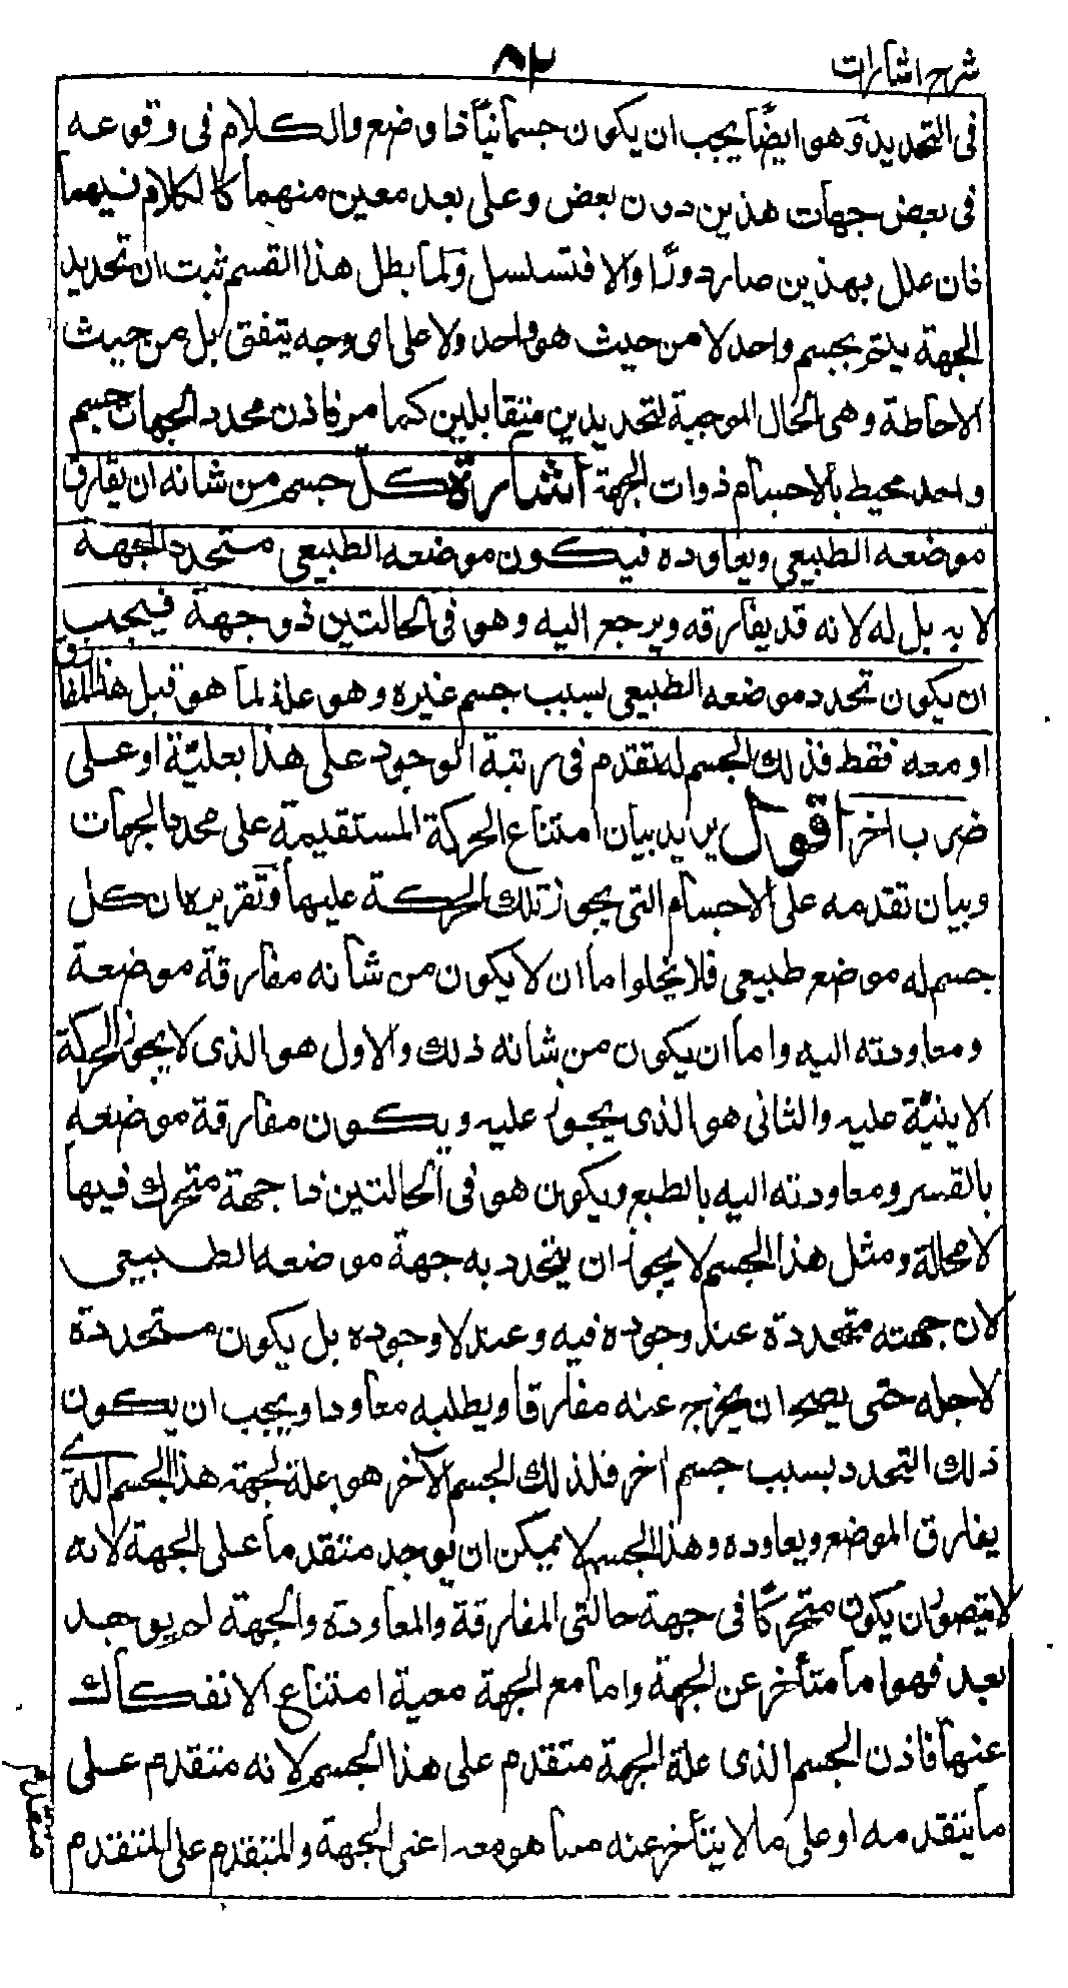 شرح اشارات
٨٢
فى التحديد وهو ايضًا يجب ان يكون جسمانيًا ذا وضع والكلام فى وقوعه
فى بعض جهات هذين دون بعض وعلى بعد معين منهما كالكلام فيهما
فان علل بهذين صار دورًا والا فتسلسل ولما بطل هذا القسم ثبت ان تحديد
الجهة يتم بجسم واحد لا من حيث هو واحد ولا على اى وجه يتفق بل من حيث
الاحاطة وهى الحال الموجبة لتحديدين متقابلين كما مر فاذن محدد الجهات جسم
واحد محيط بالاجسام ذوات الجهة اشارة كل جسم من شانه ان يفارق
موضعه الطبيعي ويعاوده فيكون موضعه الطبيعي متحدد الجهة
لا به بل له لانه قد يفارقه ويرجع اليه وهو فى الحالتين ذو جهة فيجب
ان يكون تحدد موضعه الطبيعي بسبب جسم غيره وهو علة لما هو قبل هذا المفارق
او معه فقط فذلك الجسم له تقدم فى رتبة الوجود على هذا بعليّة او على
ضرب اخر اقول يريد بيان امتناع الحركة المستقيمة على محدد الجهات
وبيان تقدمه على الاجسام التى يجوز تلك الحركة عليها وتقريره ان كل
جسم له موضع طبيعي فلا يخلوا ما ان لا يكون من شانه مفارقة موضعة
ومعاودته اليه واما ان يكون من شانه ذلك والاول هو الذى لا يجوز الحركة
الاينيّة عليه والثانى هو الذى يجوز عليه ويكون مفارقة موضعه
بالقسر ومعاودته اليه بالطبع ويكون هو فى الحالتين ذا جهة متحرك فيها
لا محالة ومثل هذا الجسم لا يجوز ان يتحدد به جهة موضعه الطبيعى
لان جهته متحددة عند وجوده فيه وعند لا وجوده بل يكون متحددة
لاجله حتى يصح ان يخرج عنه مفارقا ويطلبه معاودا ويجب ان يكون
ذلك التحدد بسبب جسم اخر فلذلك الجسم الآخر هو علة لجهة هذا الجسم الذى
يفارق الموضع ويعاوده وهذا الجسم لا يمكن ان يوجد متقدما على الجهة لانه
لا يتصور ان يكون متحركًا فى جهة حالتى المفارقة والمعاودة والجهة لم يوجد
بعد فهو اما متأخر عن الجهة واما مع الجهة معية امتناع الانفكاك
عنها فاذن الجسم الذى علة الجهة متقدم على هذا الجسم لانه متقدم على
ما يتقدمه او على ما لا يتأخر عنه مما هو معه اعنى الجهة والمتقدم على المتقدم